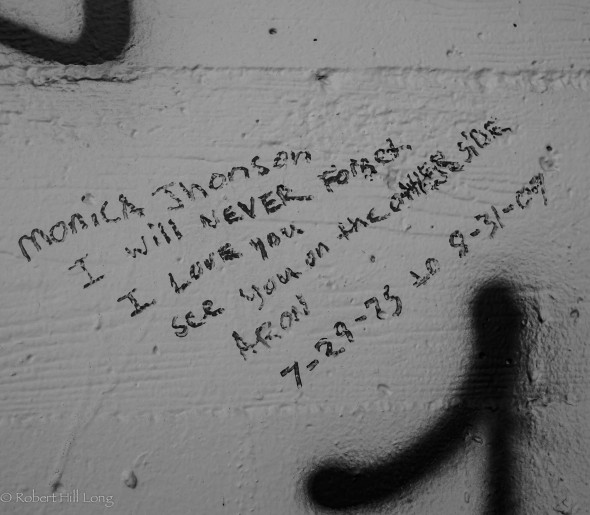 MONICA Jhonson
I will NEVER Forget.
I Love you
see you on the other SIDE
ARON
7-29-75 to 8-31-09
© Robert Hill Long